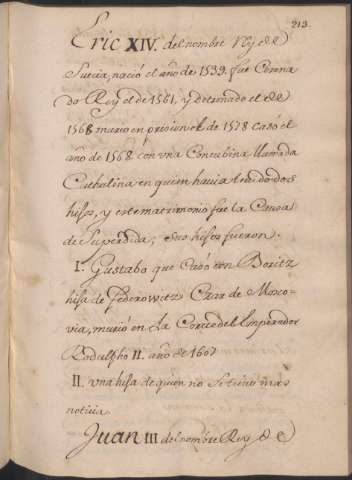 213.
Eric XIV. del nombre Rey de
Suecia, nació el año de 1533. fue Corona
do Rey el de 1561, y detenado el de
1568 murio en prision el de 1578 casó el
año de 1568 con vna Concubina llamada
Cathalina en quien havia tenido dos
hijos, y este matrimonio fue la Causa
de su perdida; sus hijos fueron.
I. Gustabo que Casó con
hija de Federowitz Czar de Mosco-
via, murió en La Corte del Imperador
Rodulpho II. año de 1607
II. vna hija de quien no se tubo mas
noticia.
Juan III del nombre Rey de